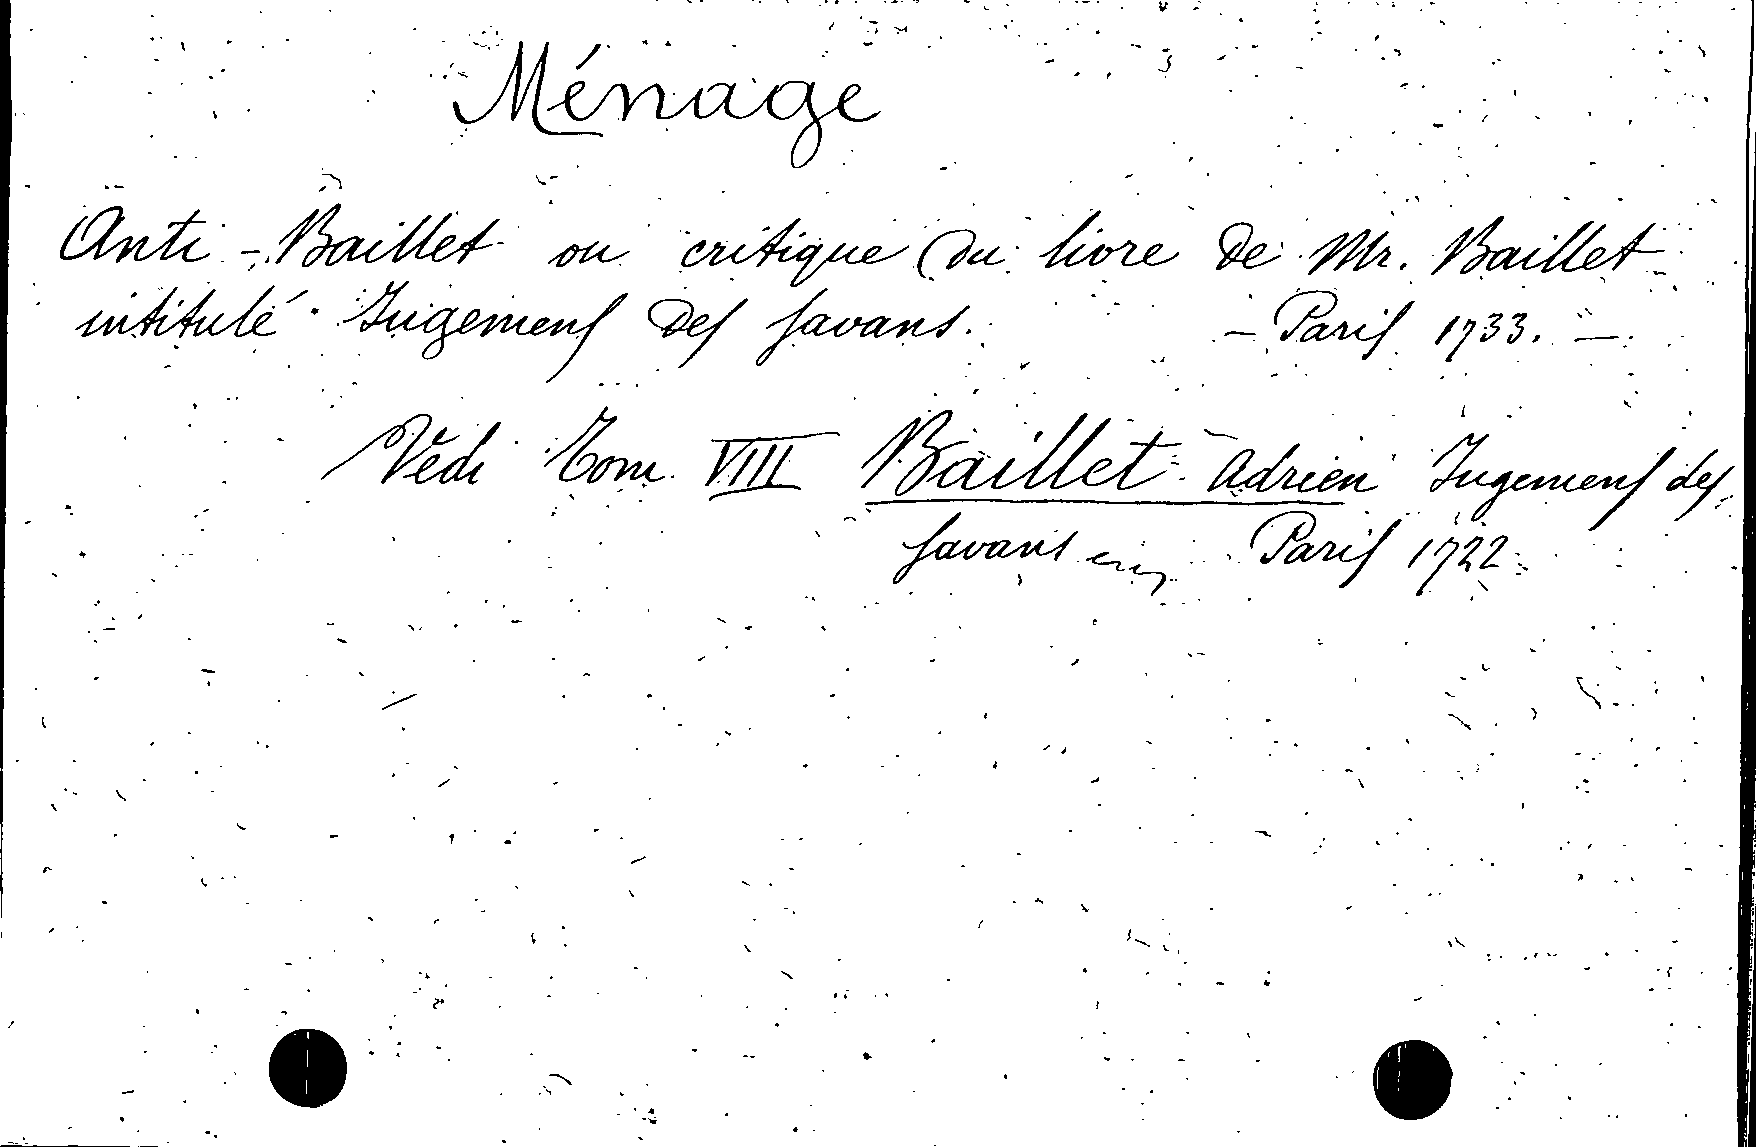 Ménage
Anti-Baillet ou critique du livre de Mr. Baillet
intitulé Jugemens des savans. - Paris 1733. -
Vedi Tom. VIII Baillet Adrien Jugemens des
savans Paris 1722